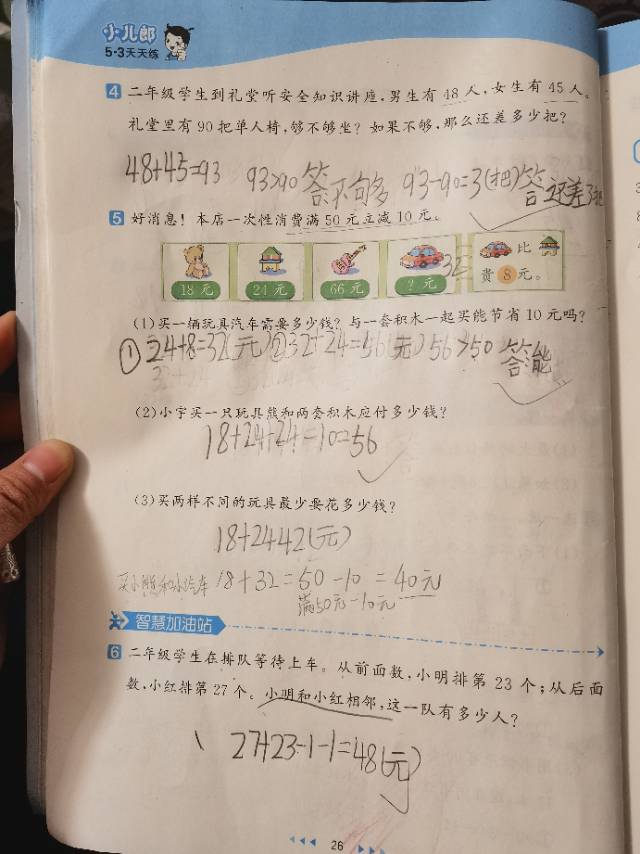 小儿郎
5·3天天练
4 二年级学生到礼堂听安全知识讲座,男生有48人,女生有45人。
礼堂里有90把单人椅,够不够坐?如果不够,那么还差多少把?
48+45=93 93>90 答:不句多 93-90=3(把)答:还差3把
5 好消息!本店一次性消费满50元立减10元。
18元 24元 66元 ?元 32 比 贵8元。
(1)买一辆玩具汽车需要多少钱?与一套积木一起买能节省10元吗?
①24+8=32(元)②32+24=56(元)56>50 答:能
(2)小宇买一只玩具熊和两套积木应付多少钱?
18+24+24-10=56
(3)买两样不同的玩具最少要花多少钱?
18+2442(元)
买小熊和小汽车 18+32=50-10=40元
满50元-10元
智慧加油站
6 二年级学生在排队等待上车。从前面数,小明排第23个;从后面
数,小红排第27个。小明和小红相邻,这一队有多少人?
27+23-1-1=48(元)
26